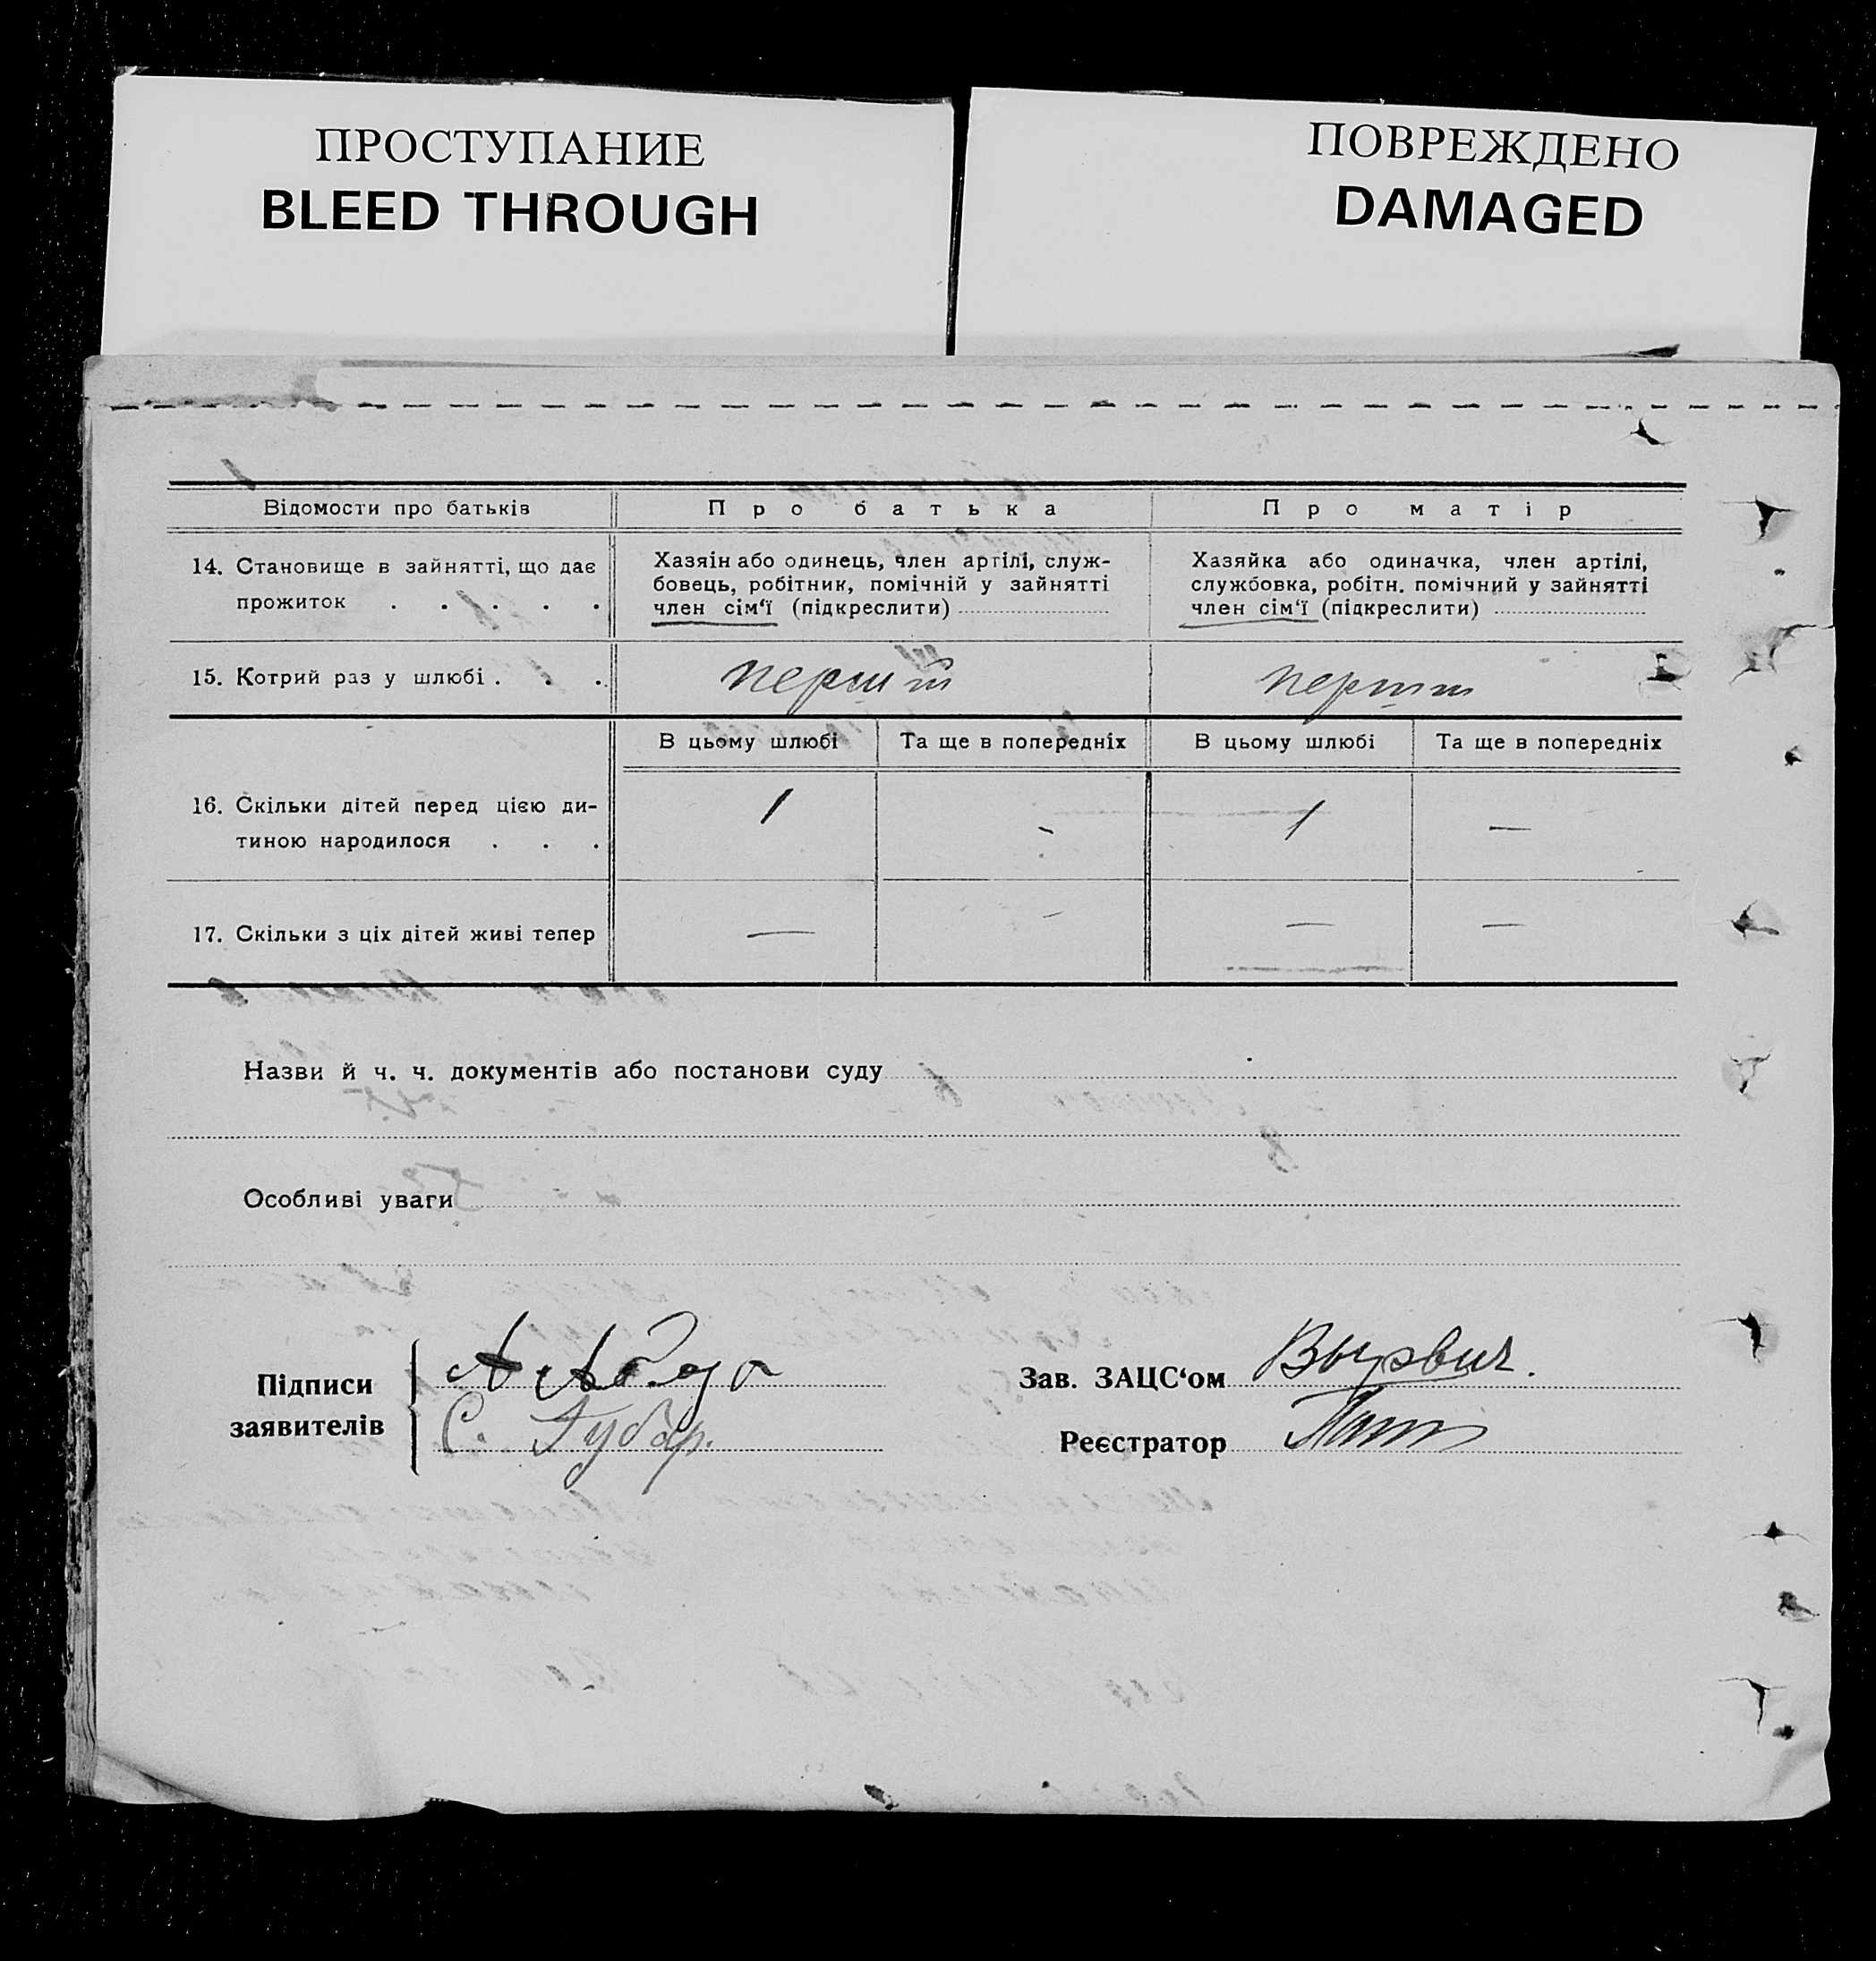 ПРОСТУПАНИЕ
BLEED THROUGH
ПОВРЕЖДЕНО
DAMAGED
Відомости про батьків
Про батька
Про матір
14. Становище в зайнятті, що дає
прожиток . . . . .
Хазяін або одинець, член артілі, служ-
бовець, робітник, помічній у зайнятті
член сім‘ї (підкреслити)
Хазяйка або одиначка, член артілі,
службовка, робітн. помічний у зайнятті
член сім‘ї (підкреслити)
15. Котрий раз у шлюбі . . .
перший
перший
В цьому шлюбі
Та ще в попередніх
В цьому шлюбі
Та ще в попередніх
16. Скільки дітей перед цією ди-
тиною народилося . . .
1
-
1
—
17. Скільки з ціх дітей живі тепер
—
—
—
—
Назви й ч. ч. документів або постанови суду
Особливі уваги
Підписи
заявителів
С. Губар.
Зав. ЗАЦС‘ом
Реєстратор